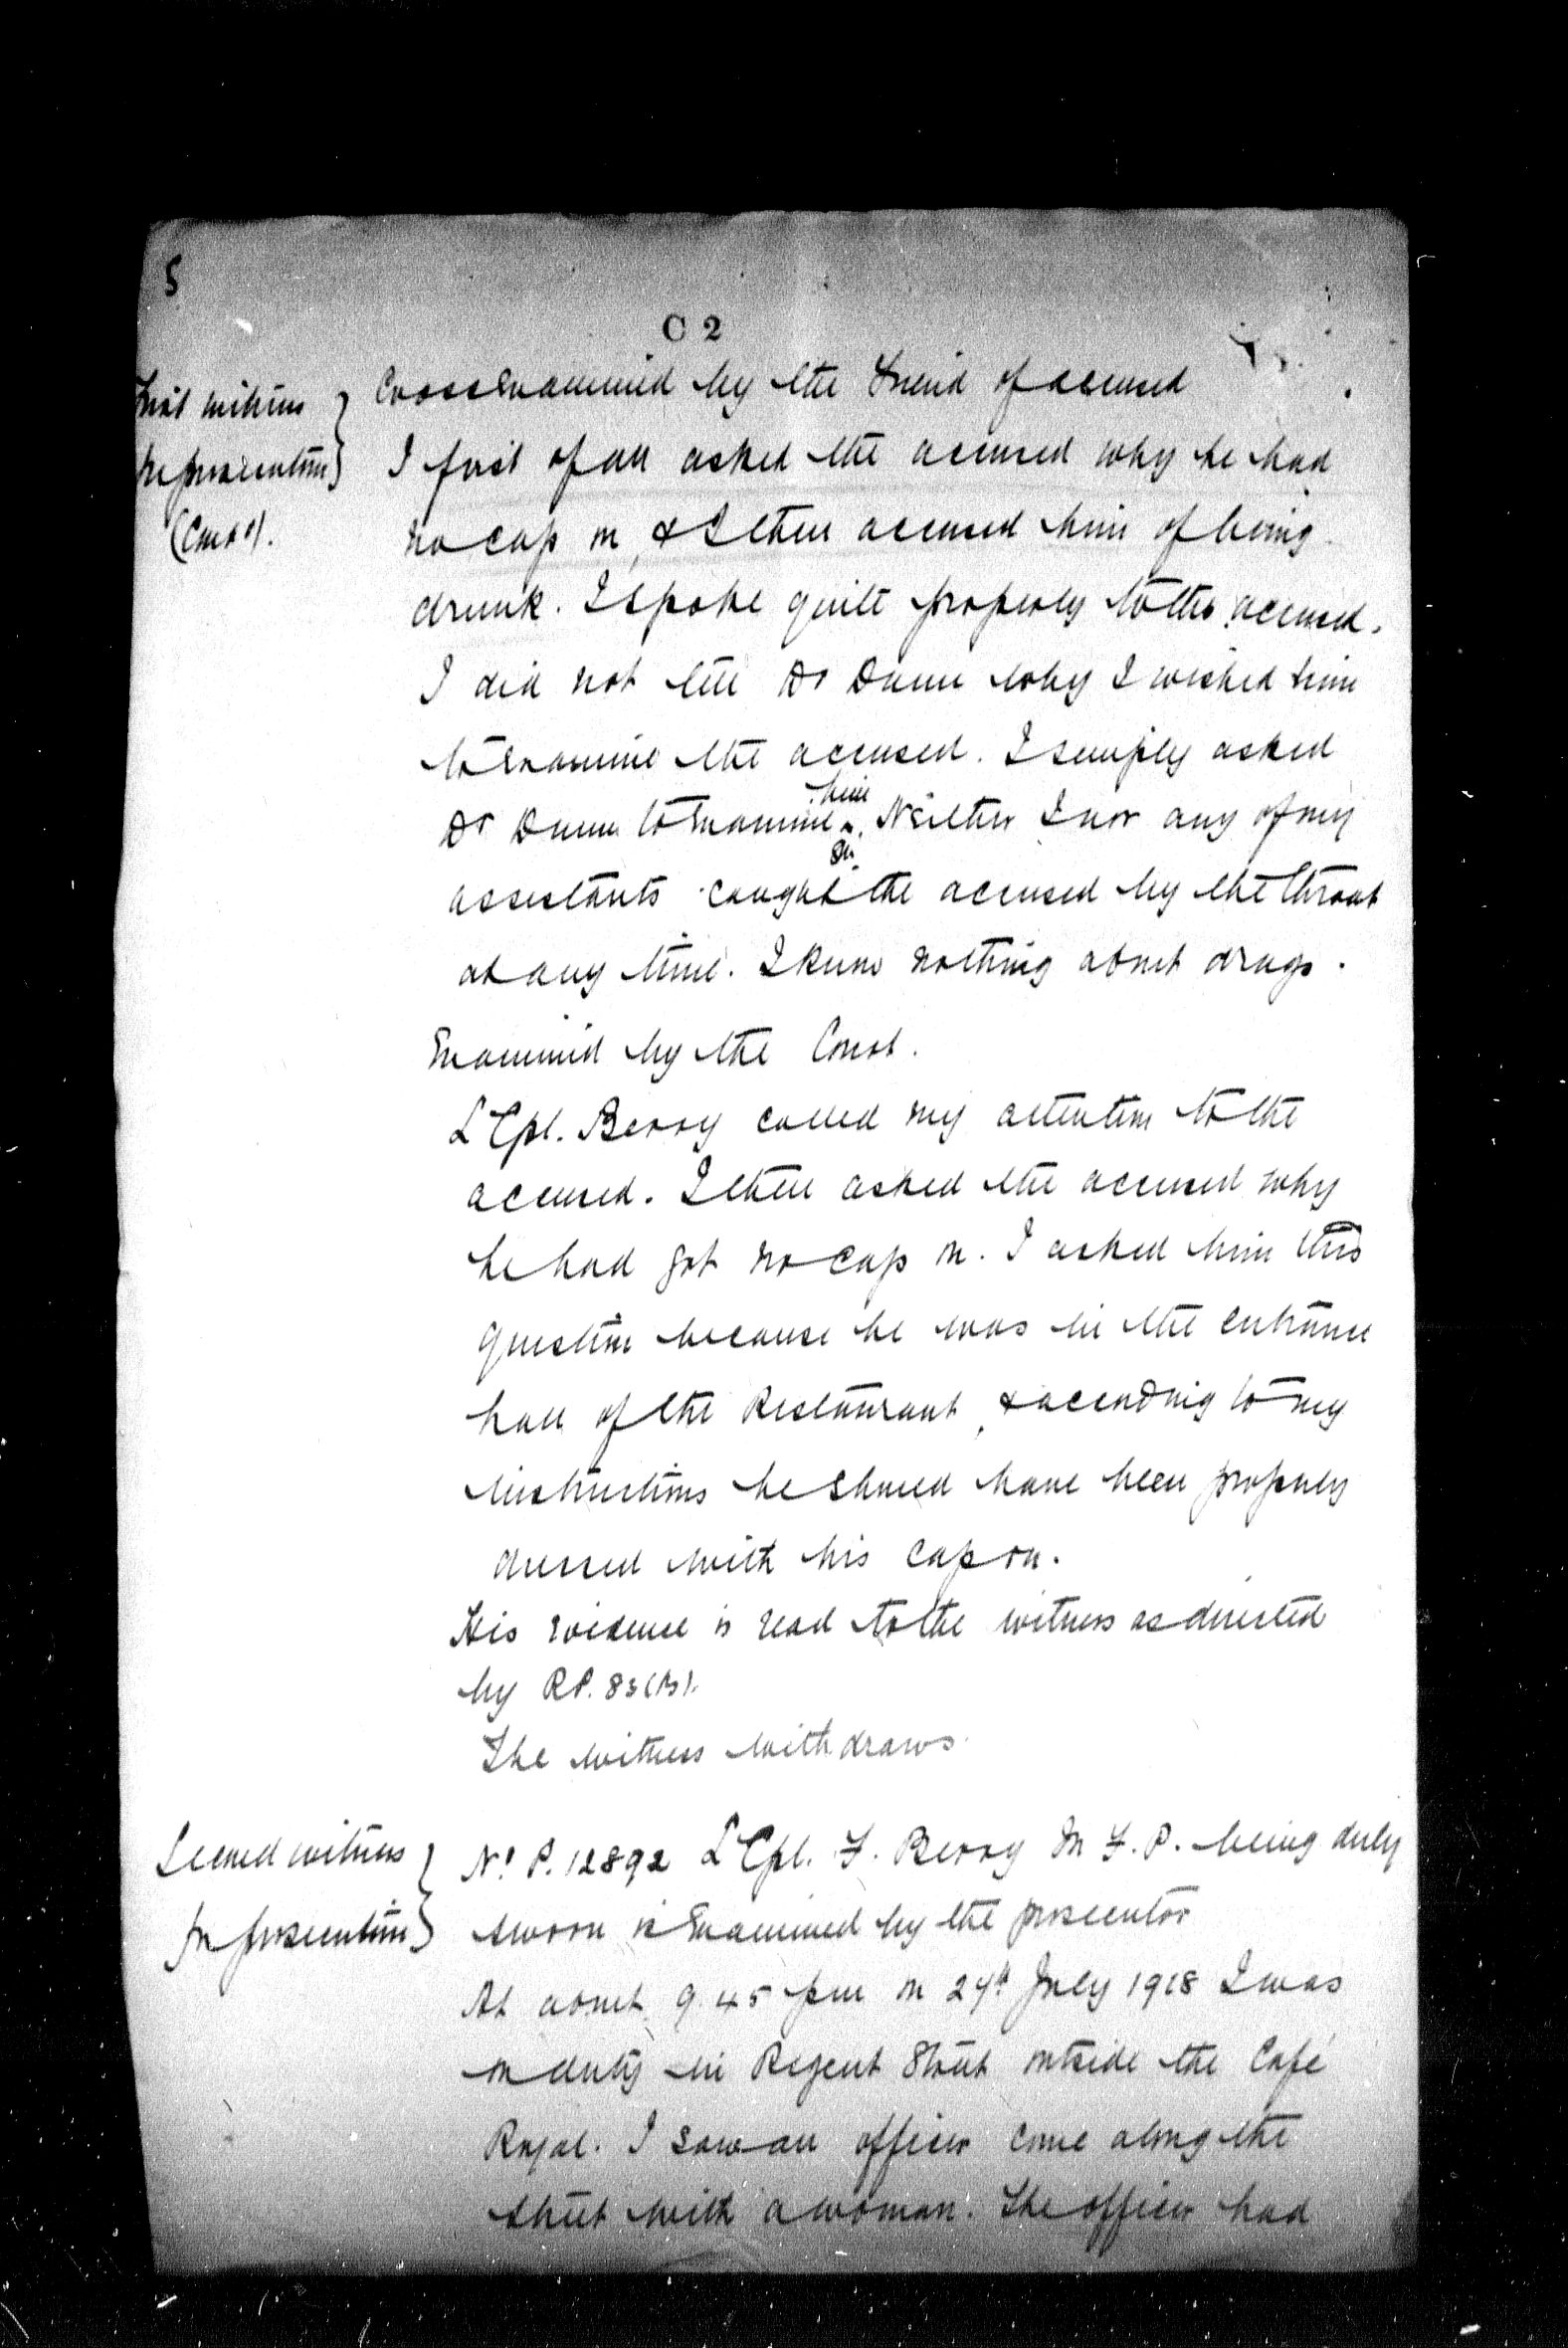 5
C 2
First witness
for prosecution
(Contd).
Cross Examined by the Friend of accused
I first of all asked the accused why he had
no cap on, & I then accused him of being
drunk. I spoke quite properly to the accused.
I did not tell Dr Dunn why I wished him
to Examine the accused. I simply asked
Dr Dunn to Examine him. Neither I nor any of my
assistants caught the accused by the throat
at any time. I know nothing about drugs.
Examined by the Court.
L Cpl. Berry called my attention to the
accused. I then asked the accused why
he had got no cap on. I asked him this
question because he was in the entrance
hall of the Restaurant, & according to my
instructions he should have been properly
dressed with his cap on.
His evidence is read to the witness as directed
by RP. 83 (B).
The witness withdraws.
Second witness
for prosecution
No P. 12892 L Cpl. F. Berry M. F. P. being duly
sworn is Examined by the prosecutor
At about 9.45 pm on 27th July 1918 I was
on duty in Regent Street outside the Café
Royal. I saw an officer come along the
street with a woman. The officer had